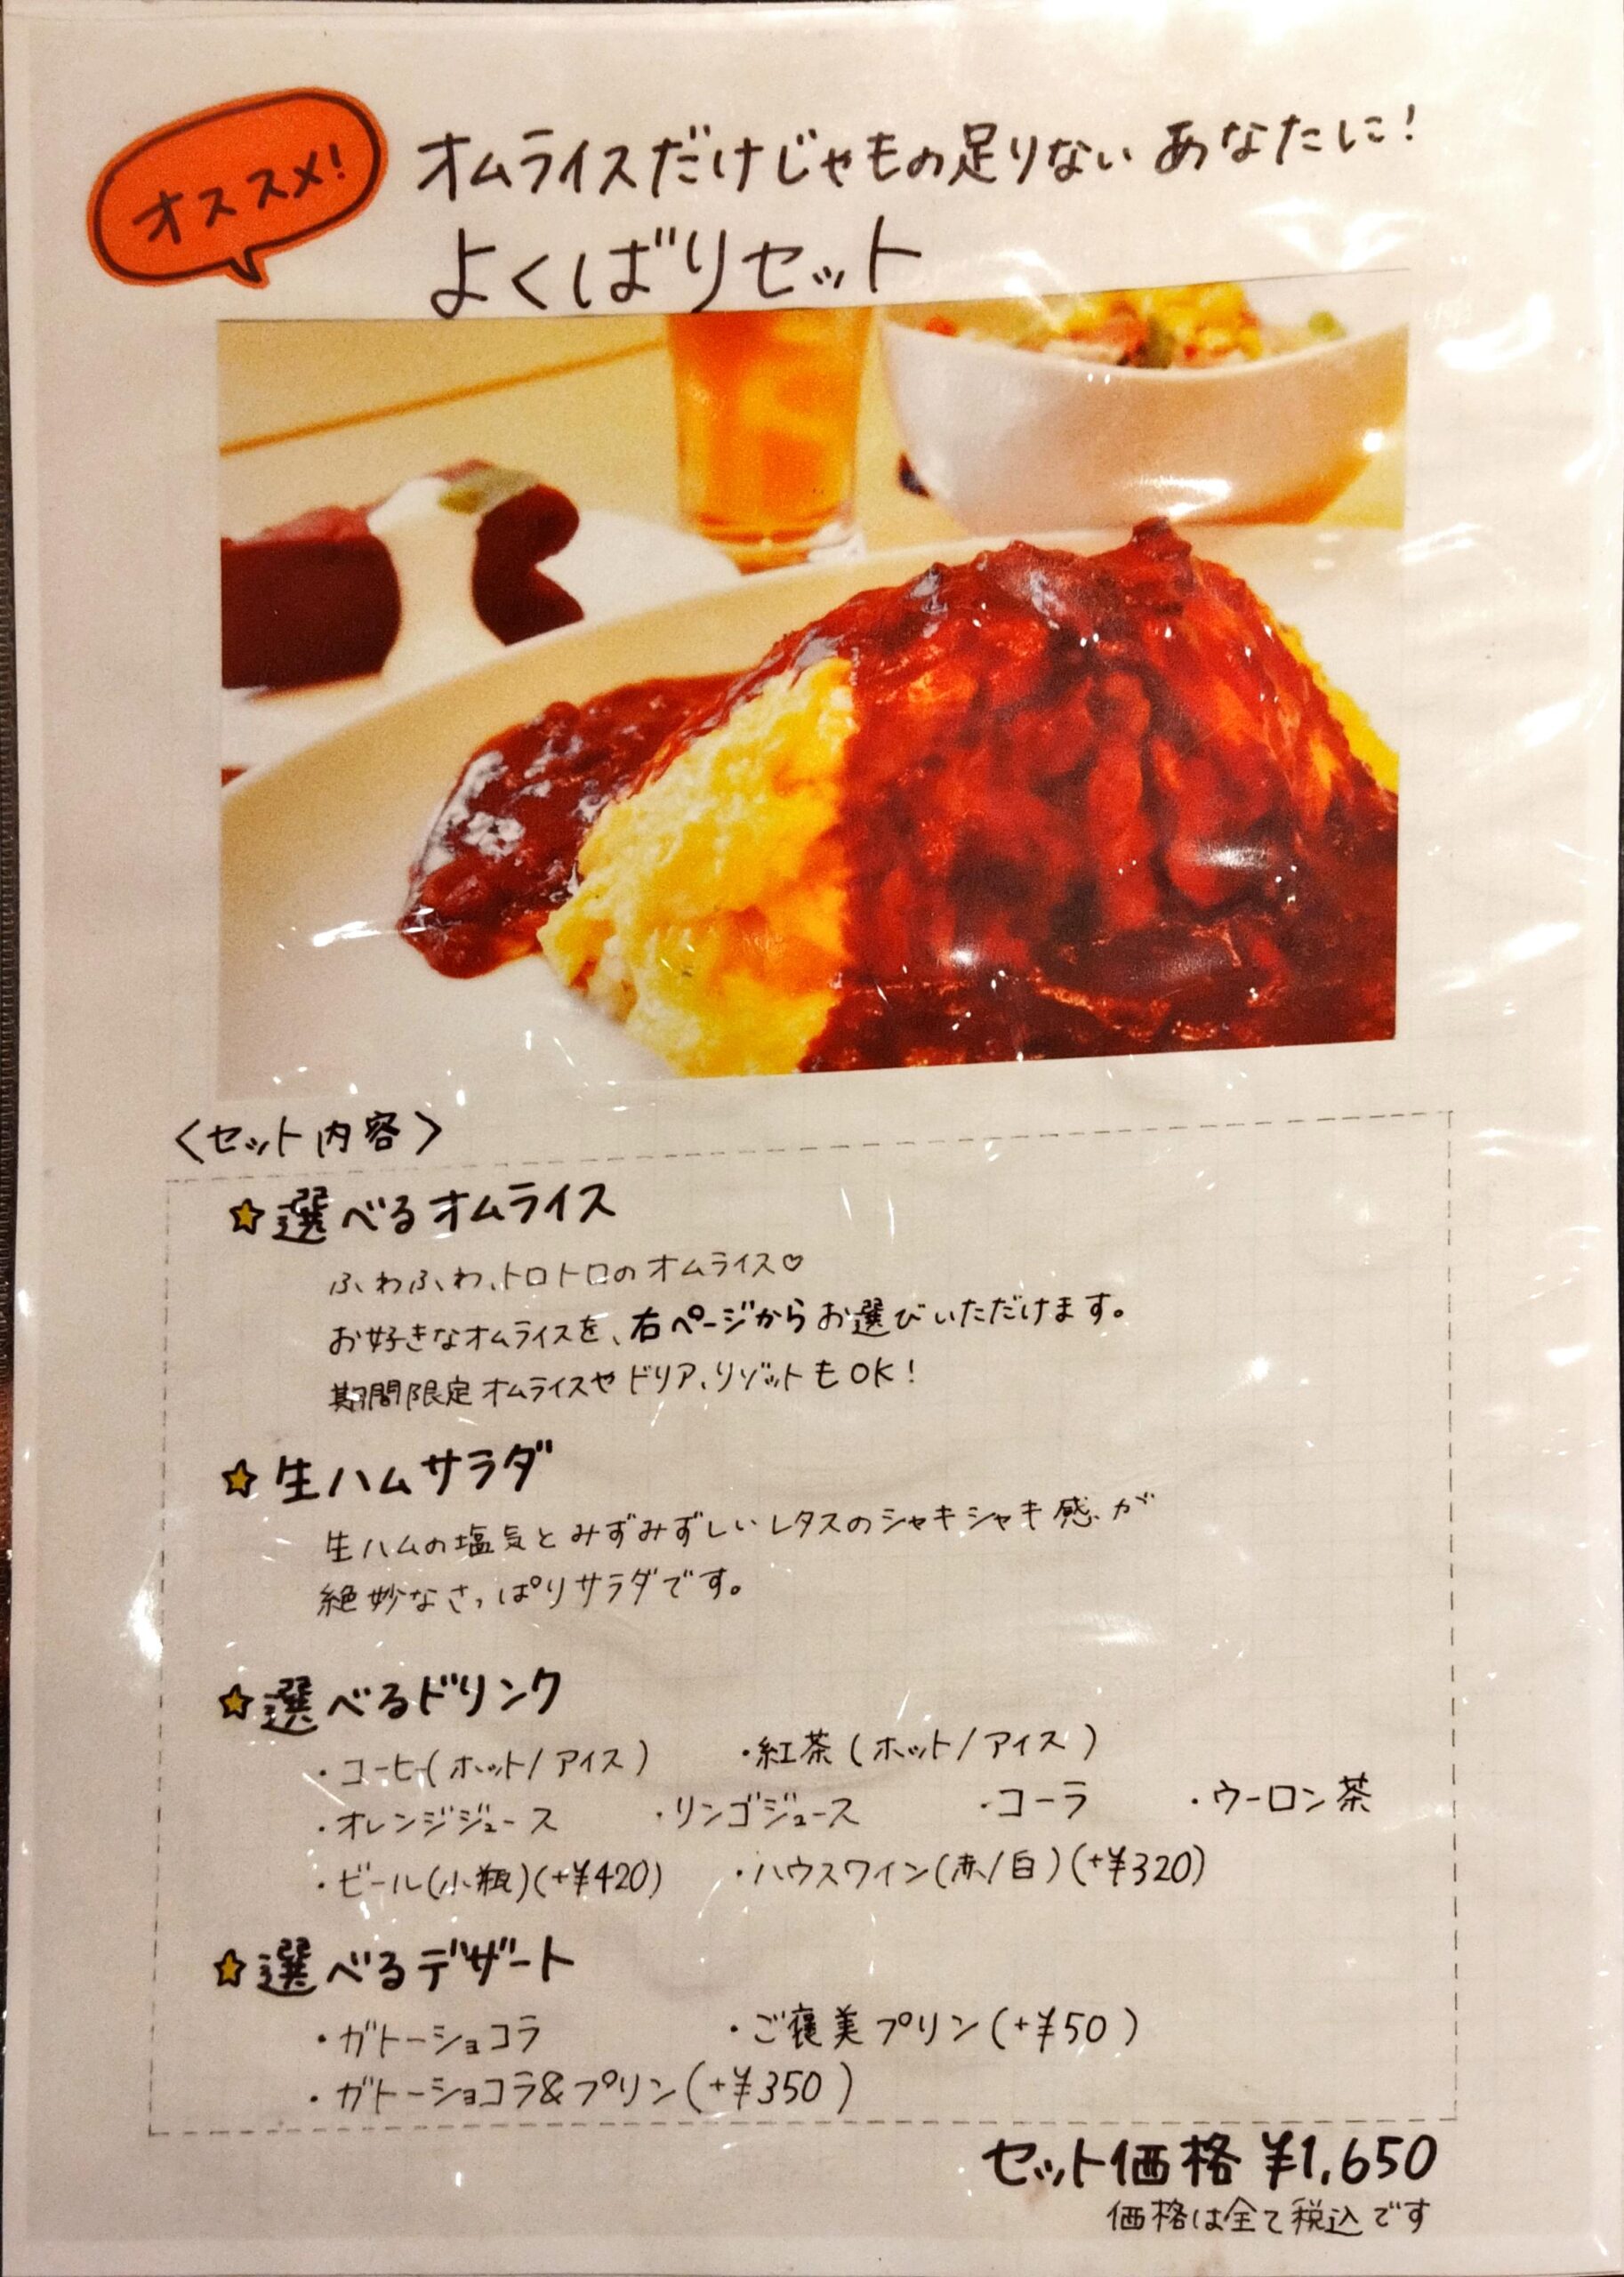 オススメ!
オムライスだけじゃもの足りない あなたに!
よくばりセット
〈セット内容〉
☆選べるオムライス
ふわふわ、トロトロのオムライス♡
お好きなオムライスを、右ページからお選びいただけます。
期間限定オムライスやドリア、リゾットもOK!
☆生ハムサラダ
生ハムの塩気とみずみずしいレタスのシャキシャキ感が
絶妙なさっぱりサラダです。
☆選べるドリンク
・コーヒー(ホット/アイス) ・紅茶(ホット/アイス)
・オレンジジュース ・リンゴジュース ・コーラ ・ウーロン茶
・ビール(小瓶)(+¥420) ・ハウスワイン(赤/白)(+¥320)
☆選べるデザート
・ガトーショコラ ・ご褒美プリン(+¥50)
・ガトーショコラ&プリン(+¥350)
セット価格 ¥1,650
価格は全て税込です